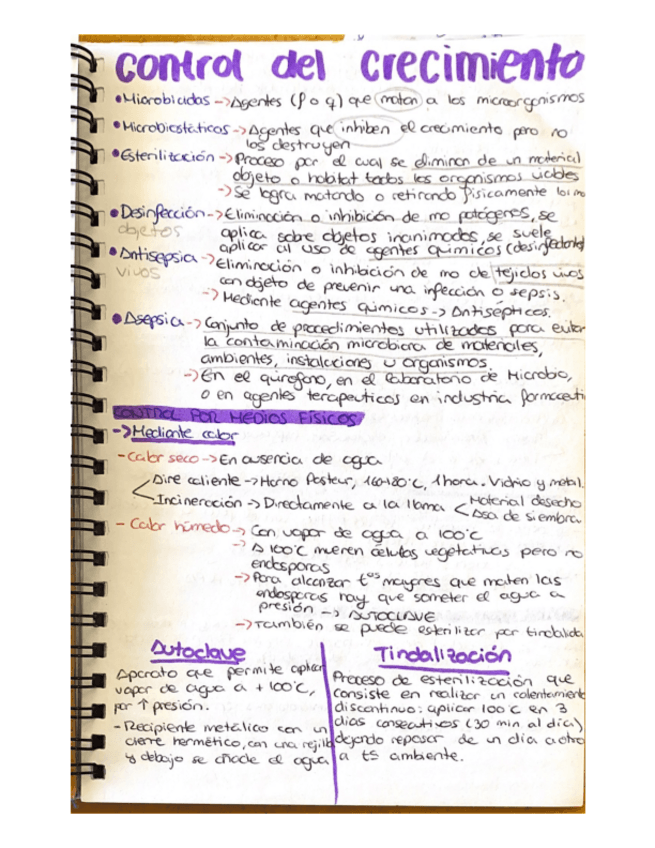 control del crecimiento
• Microbicidas -> Agentes (f o q) que matan a los microorganismos
• Microbiostáticos -> Agentes que inhiben el crecimiento pero no
los destruyen
• Esterilización -> Proceso por el cual se eliminan de un material
objeto o habitat todos los organismos viables
-> Se logra matando o retirando físicamente los mo
• Desinfección -> Eliminación o inhibición de mo patógenos, se
objetos
aplica sobre objetos inanimados, se suele
aplicar al uso de agentes químicos (desinfectante)
• Antisepsia -> Eliminación o inhibición de mo de tejidos vivos
vivos
con objeto de prevenir una infección o sepsis.
-> Mediante agentes químicos -> Antisépticos.
• Asepsia -> Conjunto de procedimientos utilizados para evitar
la contaminación microbiana de materiales,
ambientes, instalaciones u organismos.
-> En el quirofano, en el laboratorio de Microbio,
o en agentes terapeuticos en industria farmaceuti
CONTROL POR MEDIOS FÍSICOS
-> Mediante calor
- Calor seco -> En ausencia de agua
Aire caliente -> Horno Pasteur, 160-180°C, 1 hora. Vidrio y metal.
Incineración -> Directamente a la llama < Material desecho
Asa de siembra
- Calor húmedo -> Con vapor de agua a 100°C
-> A 100°C mueren células vegetativas pero no
endosporas
-> Para alcanzar tas mayores que maten las
endosporas hay que someter el agua a
presión -> AUTOCLAVE
-> También se puede esterilizar por tindaliza
Autoclave
Aparato que permite aplicar
vapor de agua a +100°C,
por ↑ presión.
- Recipiente metálico con un
cierre hermético, con una rejilla
y debajo se añade el agua
Tindalización
Proceso de esterilización que
consiste en realizar un calentamiento
discontinuo: aplicar 100°C en 3
días consecutivos (30 min al día)
dejando reposar de un día a otro
a tª ambiente.